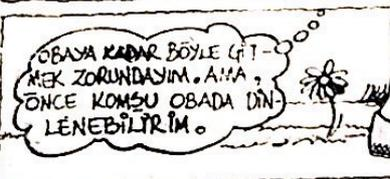 OBAYA KADAR BÖYLE GİT-
MEK ZORUNDAYIM. AMA,
ÖNCE KOMŞU OBADA DİN-
LENEBİLİRİM.